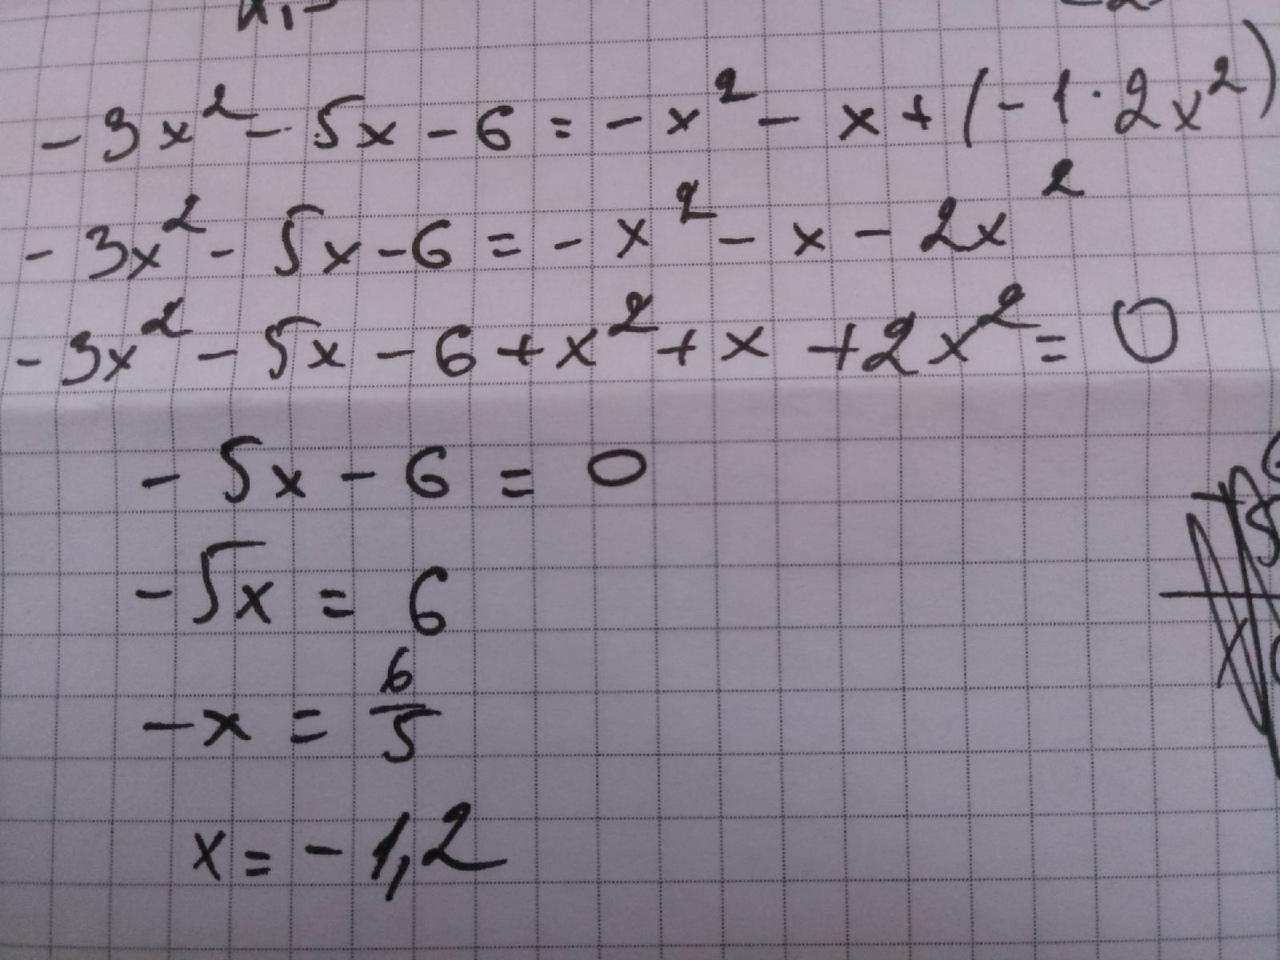 -3x² - 5x - 6 = -x² - x + (-1 · 2x²)
-3x² - 5x - 6 = -x² - x - 2x²
-3x² - 5x - 6 + x² + x + 2x² = 0
-5x - 6 = 0
-5x = 6
-x = 6/5
x = -1,2